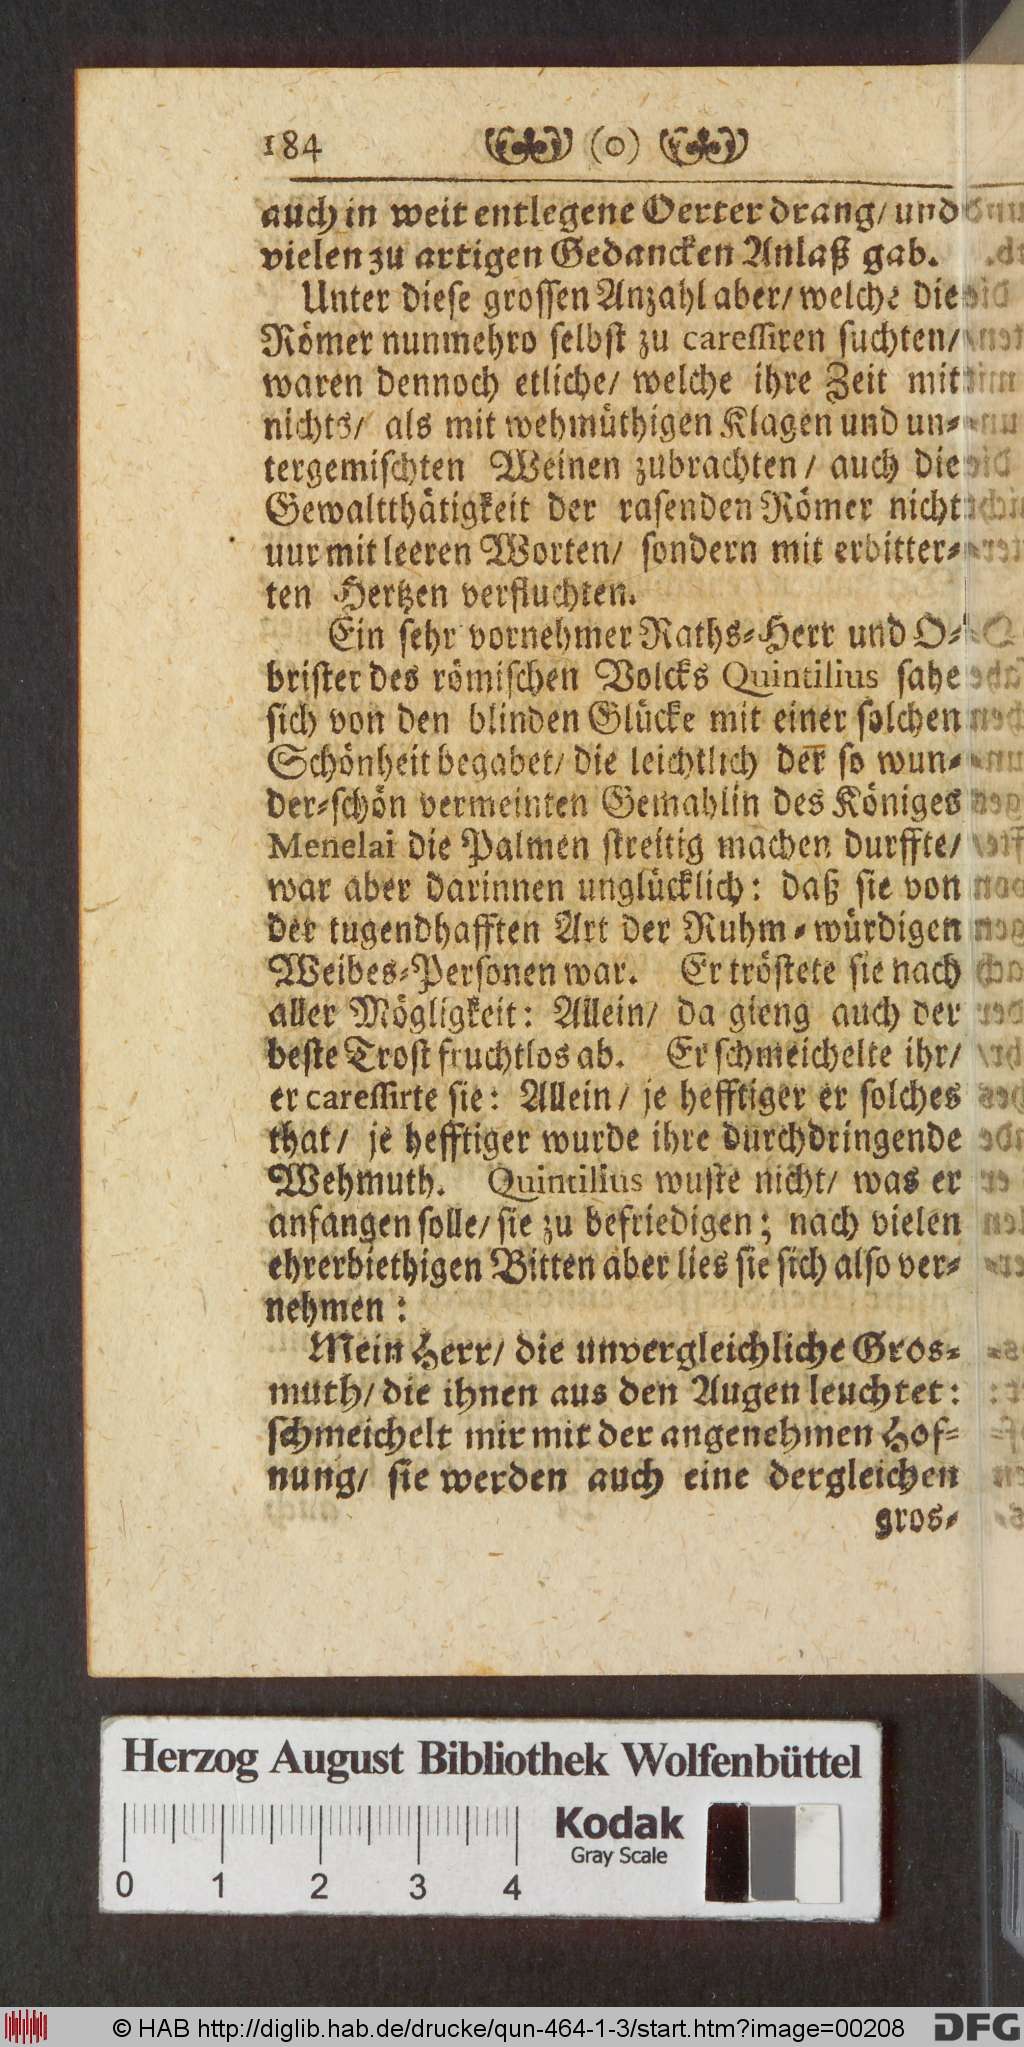 184 (o)
auch in weit entlegene Oerter drang/ und
vielen zu artigen Gedancken Anlaß gab.
Unter diese grossen Anzahl aber/ welche die
Römer nunmehro selbst zu caressiren suchten/
waren dennoch etliche/ welche ihre Zeit mit
nichts/ als mit wehmüthigen Klagen und un-
tergemischten Weinen zubrachten/ auch die
Gewaltthätigkeit der rasenden Römer nicht
uur mit leeren Worten/ sondern mit erbitter-
ten Hertzen verfluchten.
Ein sehr vornehmer Raths-Herr und O-
brister des römischen Volcks Quintilius sahe
sich von den blinden Glücke mit einer solchen
Schönheit begabet/ die leichtlich der̅ so wun-
der-schön vermeinten Gemahlin des Königes
Menelai die Palmen streitig machen durffte/
war aber darinnen unglücklich: daß sie von
der tugendhafften Art der Ruhm-würdigen
Weibes-Personen war. Er tröstete sie nach
aller Mögligkeit: Allein/ da gieng auch der
beste Trost fruchtlos ab. Er schmeichelte ihr/
er caressirte sie: Allein/ je hefftiger er solches
that/ je hefftiger wurde ihre durchdringende
Wehmuth. Quintilius wuste nicht/ was er
anfangen solle/ sie zu befriedigen; nach vielen
ehrerbiethigen Bitten aber lies sie sich also ver-
nehmen:
Mein Herr/ die unvergleichliche Gros-
muth/ die ihnen aus den Augen leuchtet:
schmeichelt mir mit der angenehmen Hof-
nung/ sie werden auch eine dergleichen
gros-
Herzog August Bibliothek Wolfenbüttel
Kodak
Gray Scale
0 1 2 3 4
© HAB http://diglib.hab.de/drucke/qun-464-1-3/start.htm?image=00208
DFG